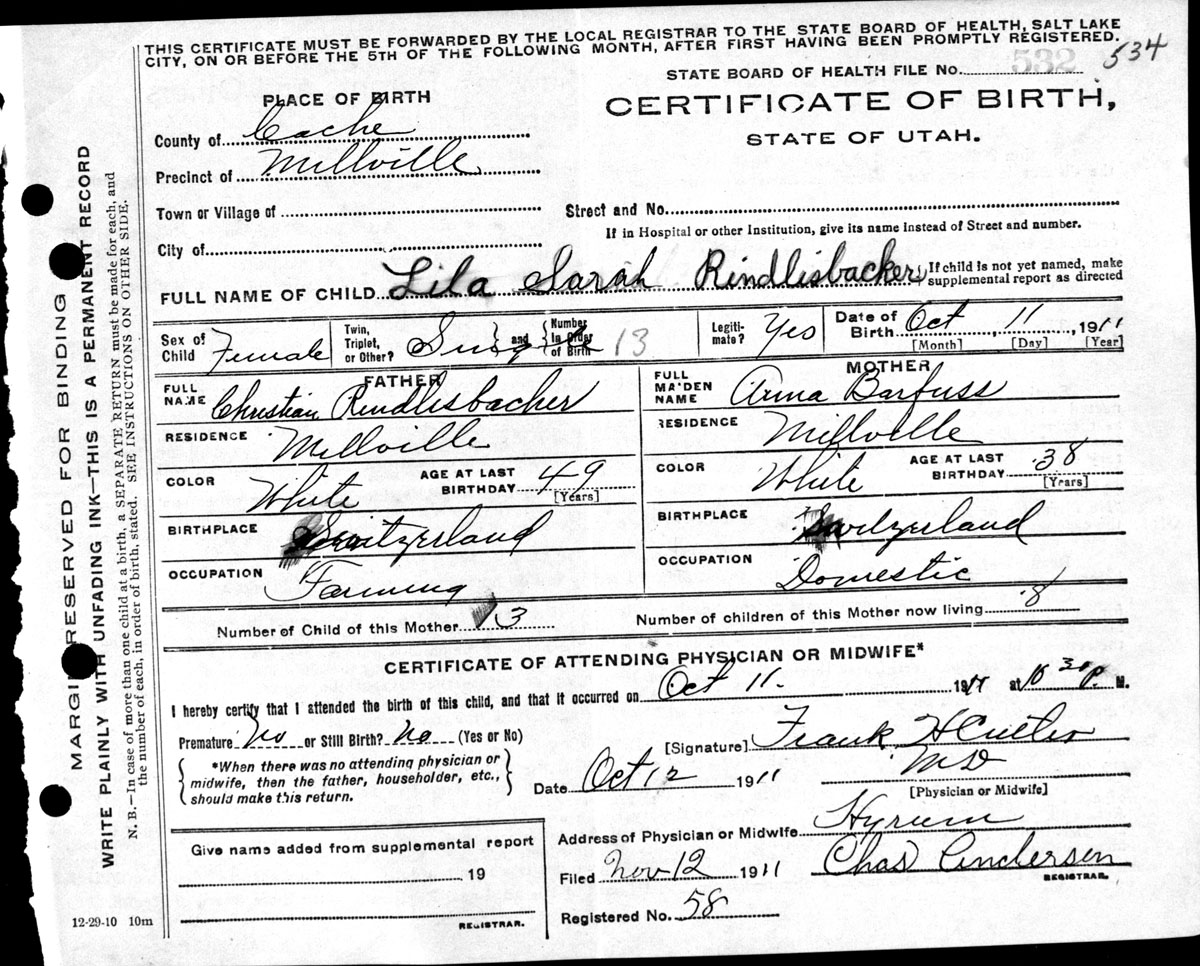 THIS CERTIFICATE MUST BE FORWARDED BY THE LOCAL REGISTRAR TO THE STATE BOARD OF HEALTH, SALT LAKE
CITY, ON OR BEFORE THE 5TH OF THE FOLLOWING MONTH, AFTER FIRST HAVING BEEN PROMPTLY REGISTERED.
534
STATE BOARD OF HEALTH FILE No. 532
PLACE OF BIRTH
CERTIFICATE OF BIRTH,
STATE OF UTAH.
County of Cache
Precinct of Millville
Town or Village of
Street and No.
If in Hospital or other Institution, give its name Instead of Street and number.
City of
FULL NAME OF CHILD Lila Sarah Rindlisbacker If child is not yet named, make
supplemental report as directed
Sex of Child Female
Twin, Triplet, or Other? Single and Number In Order of Birth 13
Legitimate? Yes
Date of Birth Oct, 11, 1911
[Month] [Day] [Year]
FATHER
FULL NAME Christian Rindlisbacher
RESIDENCE Millville
COLOR White AGE AT LAST BIRTHDAY 49
[Years]
BIRTHPLACE Switzerland
OCCUPATION Farming
MOTHER
FULL MAIDEN NAME Anna Barfuss
RESIDENCE Millville
COLOR White AGE AT LAST BIRTHDAY 38
[Years]
BIRTHPLACE Switzerland
OCCUPATION Domestic
Number of Child of this Mother 13 Number of children of this Mother now living 8
CERTIFICATE OF ATTENDING PHYSICIAN OR MIDWIFE*
I hereby certify that I attended the birth of this child, and that it occurred on Oct 11. 1911 at 10 30 P. M.
Premature No or Still Birth? No (Yes or No)
*When there was no attending physician or
midwife, then the father, householder, etc.,
should make this return.
[Signature] Frank H Cutler
MD
[Physician or Midwife]
Date Oct 12 1911
Address of Physician or Midwife Hyrum
Filed Nov 12 1911 Chas Andersen
REGISTRAR.
Registered No. 58
Give name added from supplemental report
19
REGISTRAR.
12-29-10 10m
MARGIN RESERVED FOR BINDING
WRITE PLAINLY WITH UNFADING INK—THIS IS A PERMANENT RECORD
N. B.—In case of more than one child at a birth, a SEPARATE RETURN must be made for each, and
the number of each, in order of birth, stated. SEE INSTRUCTIONS ON OTHER SIDE.